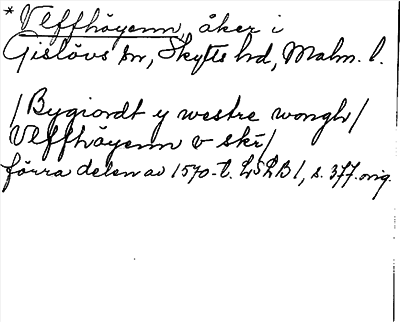 * Vlffhöyenn, åker i
Gislövs sn, Skytts hd, Malm. l.
/Bygiordt y westre wongh/
Vlffhöyenn v skr/
förra delen av 1570-t. LSLB 1, s. 377. orig.